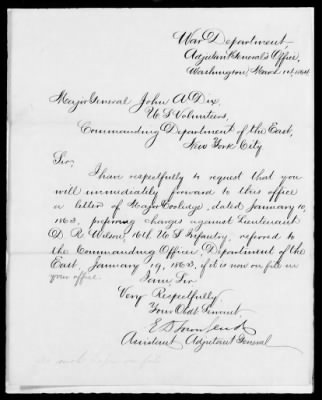 War Department,
Adjutant General's Office,
Washington, March 1864.
Major General John A Dix,
U S Volunteers,
Commanding Department of the East,
New York City
Sir,
I have respectfully to request that you
will immediately forward to this office
a letter of Major Coolidge, dated January 10,
1863, preferring charges against Lieutenant
D. R. Wilson, 16th U S Infantry, referred to
the Commanding Officer, Department of the
East, January 19, 1863, if it is now on file in
your office.
I am, Sir
Very Respectfully,
Your Obdt Servant,
E D Townsend
Assistant Adjutant General